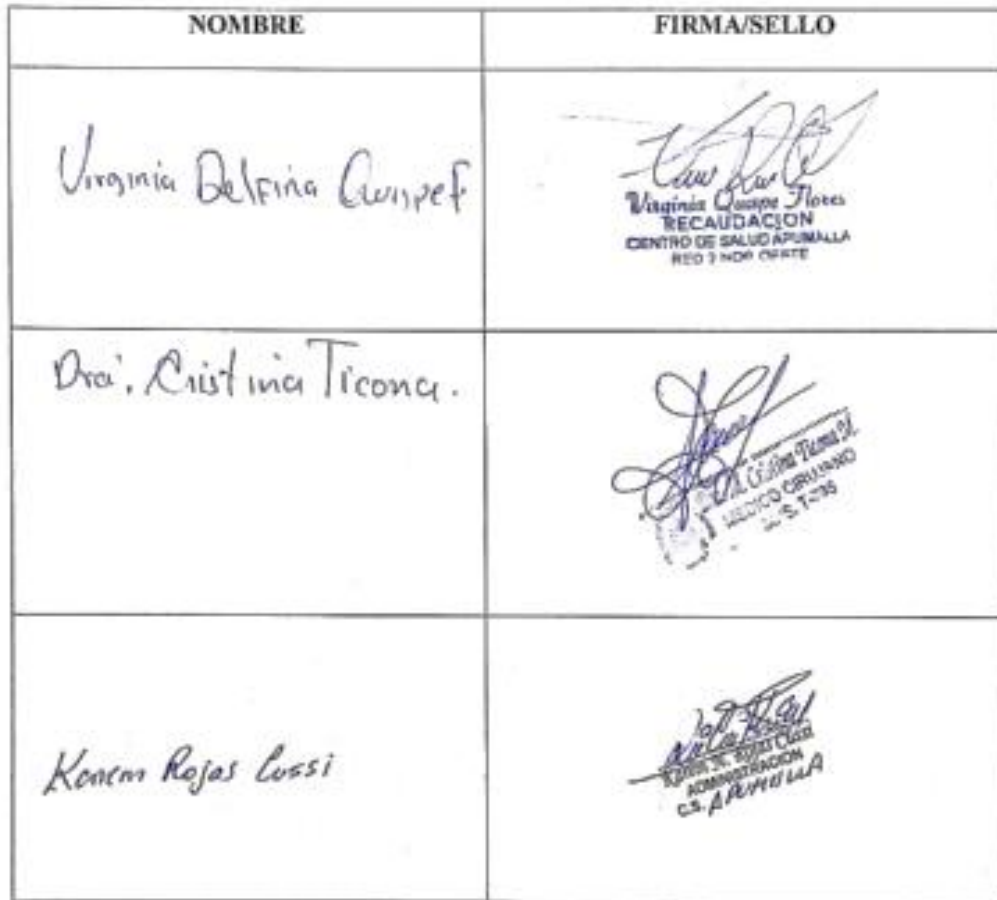 NOMBRE
FIRMA/SELLO
Virginia Delfina Quispe F
Virginia Quispe Flores
RECAUDACION
CENTRO DE SALUD APUMALLA
RED 3 NOR OESTE
Dra. Cristina Ticona.
Cristina Ticona M.
MEDICO CIRUJANO
Karem Rojas Cussi
Rojas Cussi
ADMINISTRACION
C.S. APUMALLA